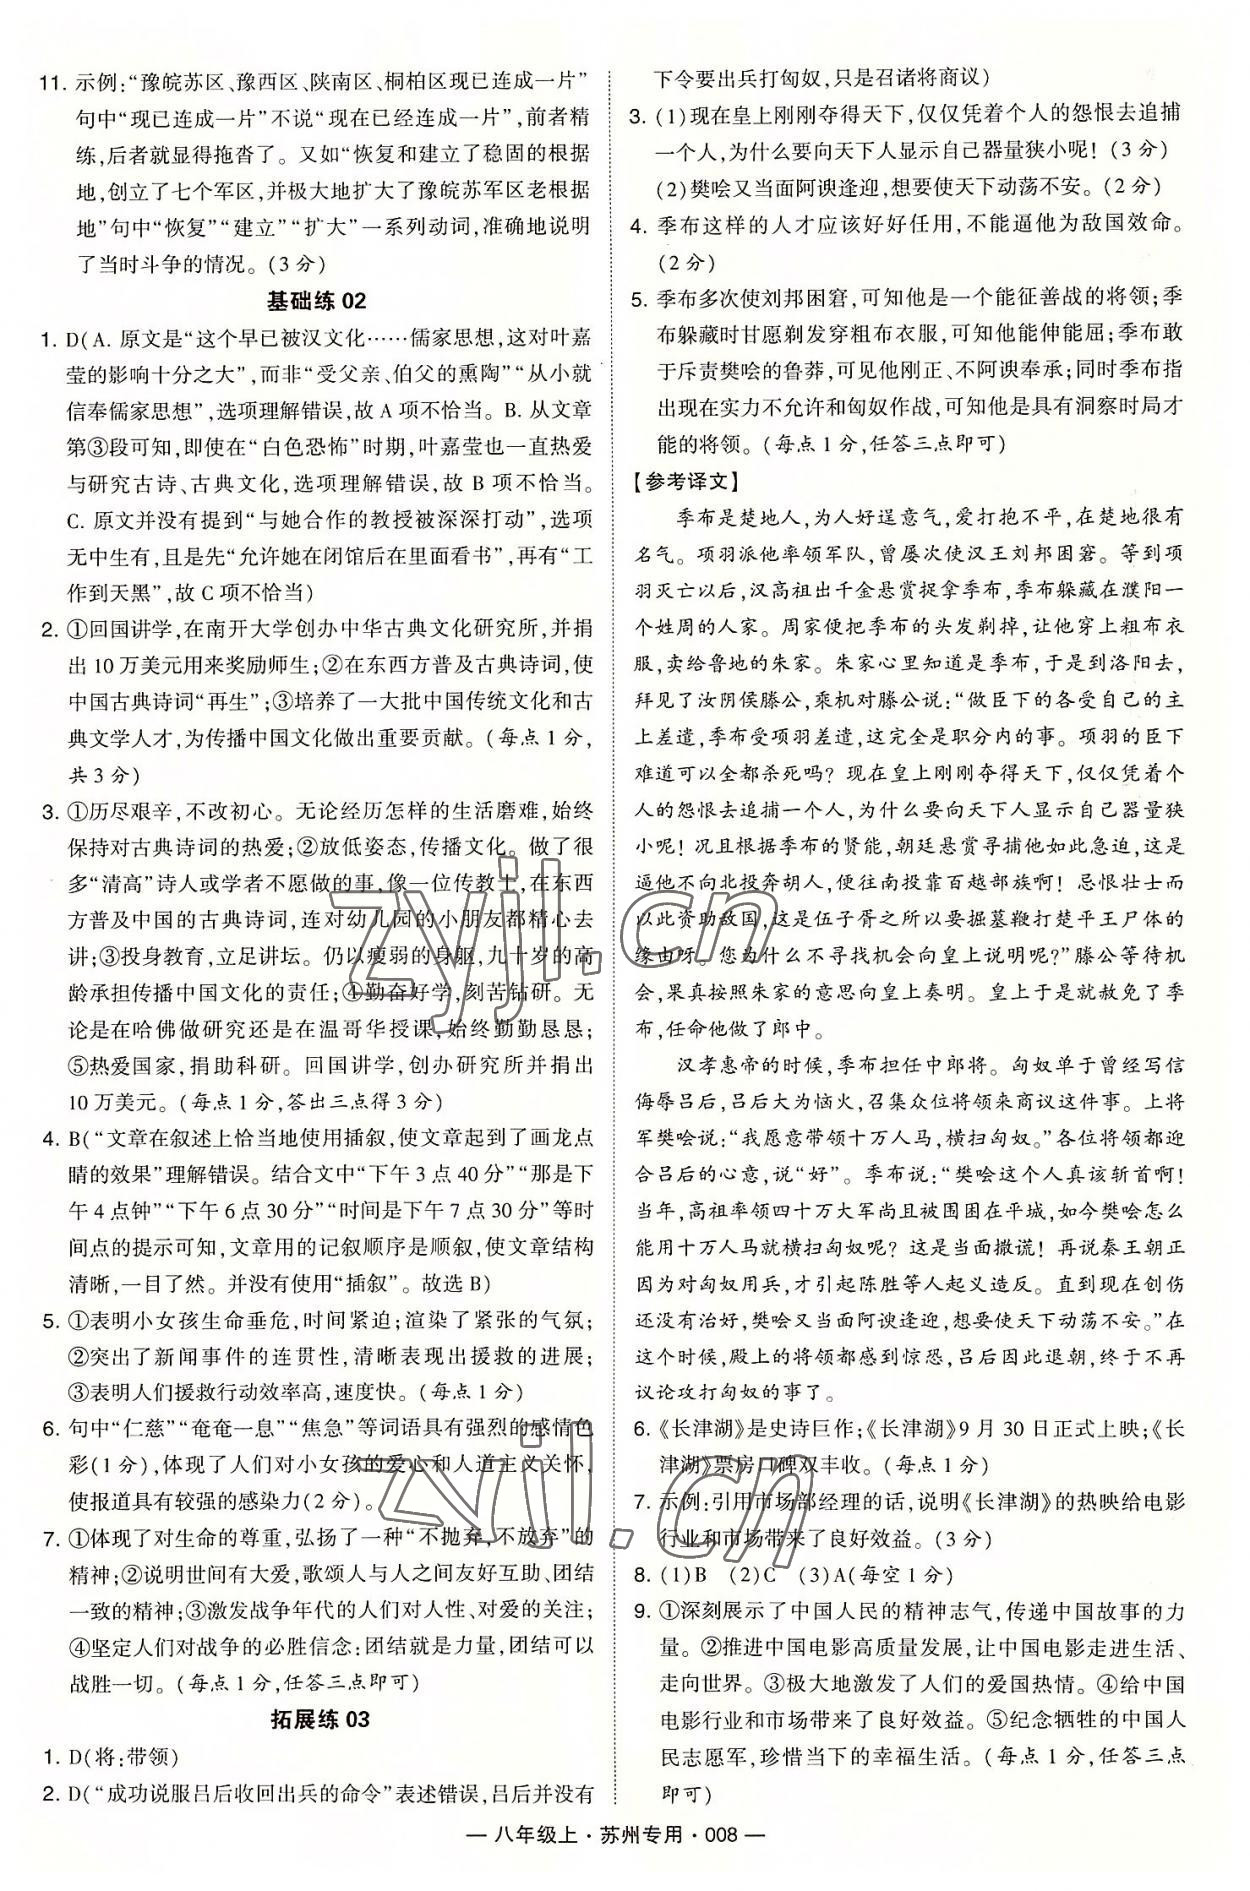 11. 示例:“豫皖苏区、豫西区、陕南区、桐柏区现已连成一片”
句中“现已连成一片”不说“现在已经连成一片”,前者精
练,后者就显得拖沓了。又如“恢复和建立了稳固的根据
地,创立了七个军区,并极大地扩大了豫皖苏军区老根据
地”句中“恢复”“建立”“扩大”一系列动词,准确地说明
了当时斗争的情况。(3分)
基础练 02
1. D(A. 原文是“这个早已被汉文化……儒家思想,这对叶嘉
莹的影响十分之大”,而非“受父亲、伯父的熏陶”“从小就
信奉儒家思想”,选项理解错误,故 A 项不恰当。B. 从文章
第③段可知,即使在“白色恐怖”时期,叶嘉莹也一直热爱
与研究古诗、古典文化,选项理解错误,故 B 项不恰当。
C. 原文并没有提到“与她合作的教授被深深打动”,选项
无中生有,且是先“允许她在闭馆后在里面看书”,再有“工
作到天黑”,故 C 项不恰当)
2. ①回国讲学,在南开大学创办中华古典文化研究所,并捐
出 10 万美元用来奖励师生;②在东西方普及古典诗词,使
中国古典诗词“再生”;③培养了一大批中国传统文化和古
典文学人才,为传播中国文化做出重要贡献。(每点1分,
共3分)
3. ①历尽艰辛,不改初心。无论经历怎样的生活磨难,始终
保持对古典诗词的热爱;②放低姿态,传播文化。做了很
多“清高”诗人或学者不愿做的事,像一位传教士,在东西
方普及中国的古典诗词,连对幼儿园的小朋友都精心去
讲;③投身教育,立足讲坛。仍以瘦弱的身躯,九十岁的高
龄承担传播中国文化的责任;④勤奋好学,刻苦钻研。无
论是在哈佛做研究还是在温哥华授课,始终勤勤恳恳;
⑤热爱国家,捐助科研。回国讲学,创办研究所并捐出
10 万美元。(每点1分,答出三点得3分)
4. B(“文章在叙述上恰当地使用插叙,使文章起到了画龙点
睛的效果”理解错误。结合文中“下午 3 点 40 分”“那是下
午 4 点钟”“下午 6 点 30 分”“时间是下午 7 点 30 分”等时
间点的提示可知,文章用的记叙顺序是顺叙,使文章结构
清晰,一目了然。并没有使用“插叙”。故选 B)
5. ①表明小女孩生命垂危,时间紧迫;渲染了紧张的气氛;
②突出了新闻事件的连贯性,清晰表现出援救的进展;
③表明人们援救行动效率高,速度快。(每点1分)
6. 句中“仁慈”“奄奄一息”“焦急”等词语具有强烈的感情色
彩(1分),体现了人们对小女孩的爱心和人道主义关怀,
使报道具有较强的感染力(2分)。
7. ①体现了对生命的尊重,弘扬了一种“不抛弃,不放弃”的
精神;②说明世间有大爱,歌颂人与人之间友好互助、团结
一致的精神;③激发战争年代的人们对人性、对爱的关注;
④坚定人们对战争的必胜信念:团结就是力量,团结可以
战胜一切。(每点1分,任答三点即可)
拓展练 03
1. D(将:带领)
2. D(“成功说服吕后收回出兵的命令”表述错误,吕后并没有
下令要出兵打匈奴,只是召诸将商议)
3. (1)现在皇上刚刚夺得天下,仅仅凭着个人的怨恨去追捕
一个人,为什么要向天下人显示自己器量狭小呢!(3分)
(2)樊哙又当面阿谀逢迎,想要使天下动荡不安。(2分)
4. 季布这样的人才应该好好任用,不能逼他为敌国效命。
(2分)
5. 季布多次使刘邦困窘,可知他是一个能征善战的将领;季
布躲藏时甘愿剃发穿粗布衣服,可知他能伸能屈;季布敢
于斥责樊哙的鲁莽,可知他刚正、不阿谀奉承;同时季布指
出现在实力不允许和匈奴作战,可知他是具有洞察时局才
能的将领。(每点1分,任答三点即可)
【参考译文】
季布是楚地人,为人好逞意气,爱打抱不平,在楚地很有
名气。项羽派他率领军队,曾屡次使汉王刘邦困窘。等到项
羽灭亡以后,汉高祖出千金悬赏捉拿季布,季布躲藏在濮阳一
个姓周的人家。周家便把季布的头发剃掉,让他穿上粗布衣
服,卖给鲁地的朱家。朱家心里知道是季布,于是到洛阳去,
拜见了汝阴侯滕公,乘机对滕公说:“做臣下的各受自己的主
上差遣,季布受项羽差遣,这完全是职分内的事。项羽的臣下
难道可以全都杀死吗?现在皇上刚刚夺得天下,仅仅凭着个
人的怨恨去追捕一个人,为什么要向天下人显示自己器量狭
小呢!况且根据季布的贤能,朝廷悬赏寻捕他如此急迫,这是
逼他不向北投奔胡人,便往南投靠百越部族啊!忌恨壮士而
以此资助敌国,这是伍子胥之所以要掘墓鞭打楚平王尸体的
缘由呀。您为什么不寻找机会向皇上说明呢?”滕公等待机
会,果真按照朱家的意思向皇上奏明。皇上于是就赦免了季
布,任命他做了郎中。
汉孝惠帝的时候,季布担任中郎将。匈奴单于曾经写信
侮辱吕后,吕后大为恼火,召集众位将领来商议这件事。上将
军樊哙说:“我愿意带领十万人马,横扫匈奴。”各位将领都迎
合吕后的心意,说“好”。季布说:“樊哙这个人真该斩首啊!
当年,高祖率领四十万大军尚且被围困在平城,如今樊哙怎么
能用十万人马就横扫匈奴呢?这是当面撒谎!再说秦王朝正
因为对匈奴用兵,才引起陈胜等人起义造反。直到现在创伤
还没有治好,樊哙又当面阿谀逢迎,想要使天下动荡不安。”在
这个时候,殿上的将领都感到惊恐,吕后因此退朝,终于不再
议论攻打匈奴的事了。
6. 《长津湖》是史诗巨作;《长津湖》9月30日正式上映;《长
津湖》票房口碑双丰收。(每点1分)
7. 示例:引用市场部经理的话,说明《长津湖》的热映给电影
行业和市场带来了良好效益。(3分)
8. (1)B (2)C (3)A(每空1分)
9. ①深刻展示了中国人民的精神志气,传递中国故事的力
量。②推进中国电影高质量发展,让中国电影走进生活、
走向世界。③极大地激发了人们的爱国热情。④给中国
电影行业和市场带来了良好效益。⑤纪念牺牲的中国人
民志愿军,珍惜当下的幸福生活。(每点1分,任答三点
即可)
zyjl.cn
zyjl.cn
— 八年级上·苏州专用·008 —